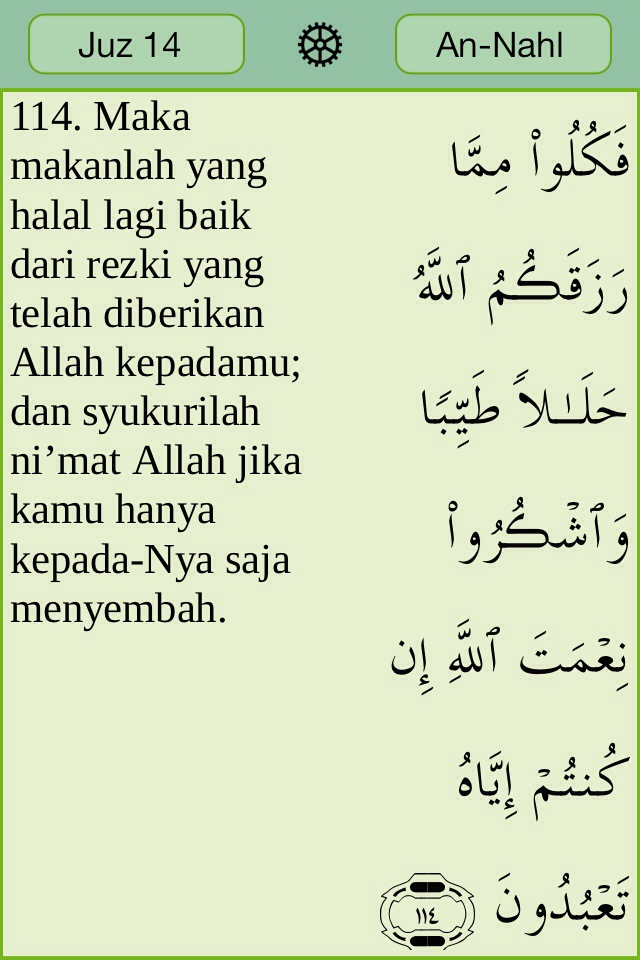 Juz 14
An-Nahl
114. Maka
makanlah yang
halal lagi baik
dari rezki yang
telah diberikan
Allah kepadamu;
dan syukurilah
ni’mat Allah jika
kamu hanya
kepada-Nya saja
menyembah.
فَكُلُوا۟ مِمَّا
رَزَقَكُمُ ٱللَّهُ
حَلَـٰلاً طَيِّبًا
وَٱشْكُرُوا۟
نِعْمَتَ ٱللَّهِ إِن
كُنتُمْ إِيَّاهُ
تَعْبُدُونَ ١١٤